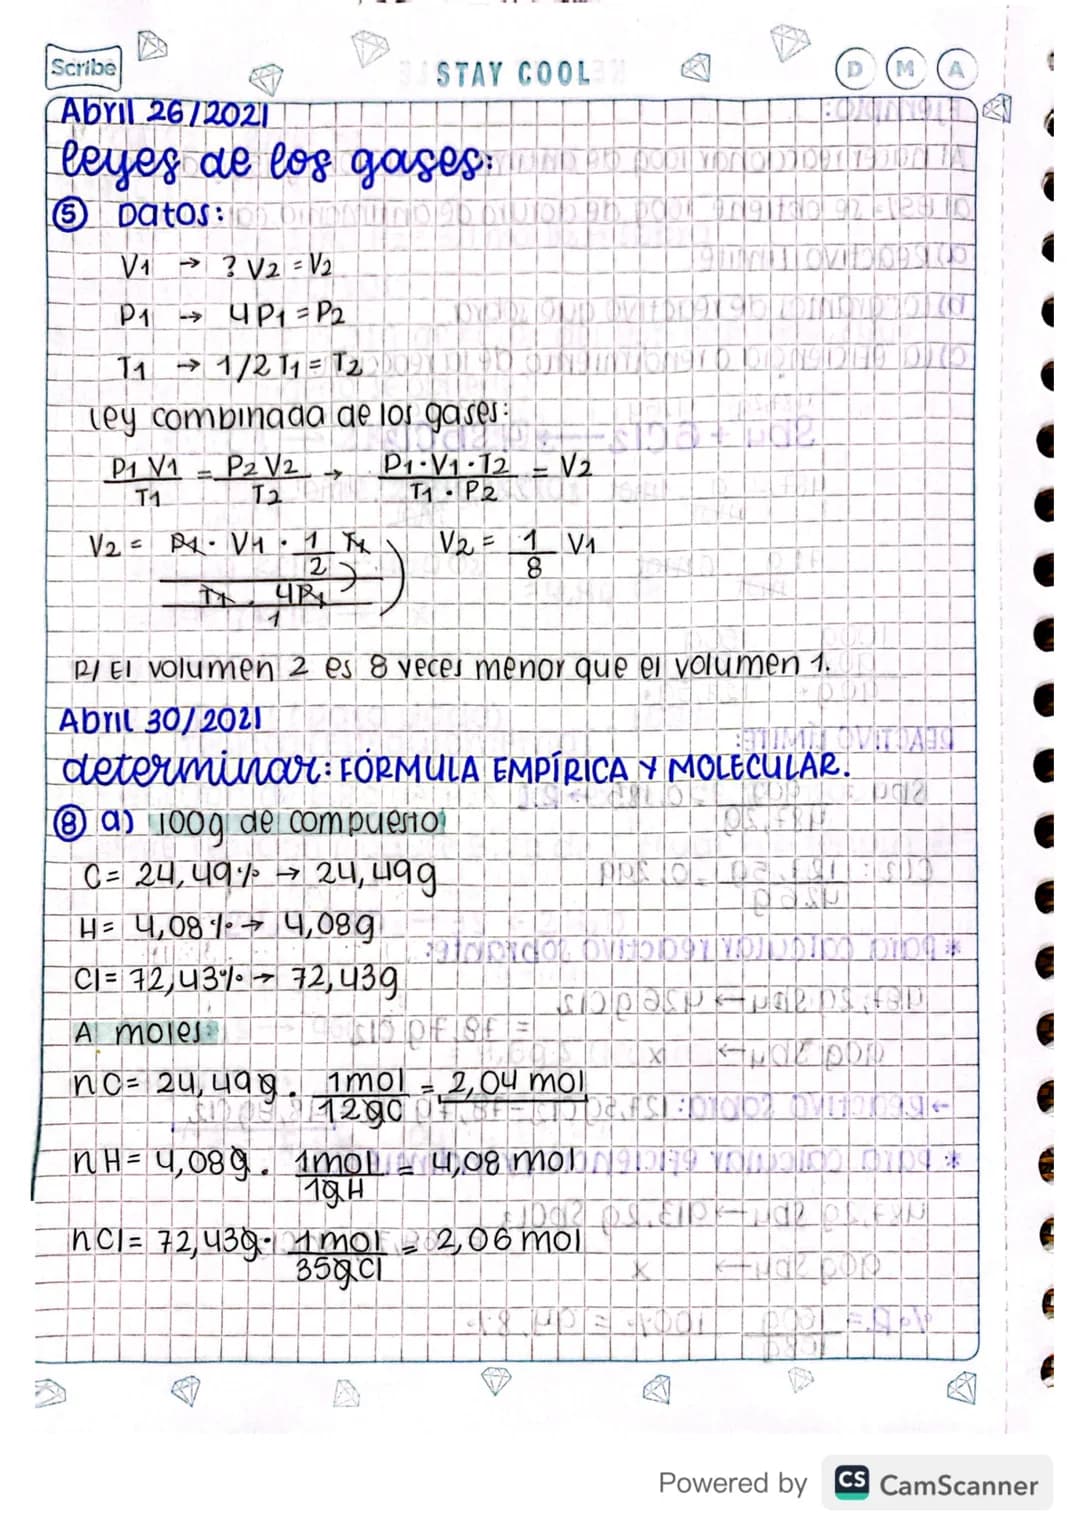 Scribe
STAY COOL
D M A
Abril 26/2021
leyes de los gases:
⑤ Datos:
V1 → ? V2 = V2
P1 → 4P1 = P2
T1 → 1/2 T1 = T2
ley combinada de los gases:
P1 V1 / T1 = P2 V2 / T2 → P1·V1·T2 / T1·P2 = V2
V2 = P1·V1·1/2 T1 / T1·4P1 / 1 V2 = 1/8 V1
R/ El volumen 2 es 8 veces menor que el volumen 1.
Abril 30/2021
determinar: FÓRMULA EMPÍRICA Y MOLECULAR.
⑧ a) 100g de compuesto
C= 24,49% → 24,49g
H= 4,08% → 4,08g
Cl= 72,43% → 72,43g
A moles:
nC= 24,49g. 1mol / 12gC = 2,04 mol
nH= 4,08g. 1mol / 1gH = 4,08 mol
nCl= 72,43g· 1mol / 35gCl = 2,06 mol
Powered by CS CamScanner